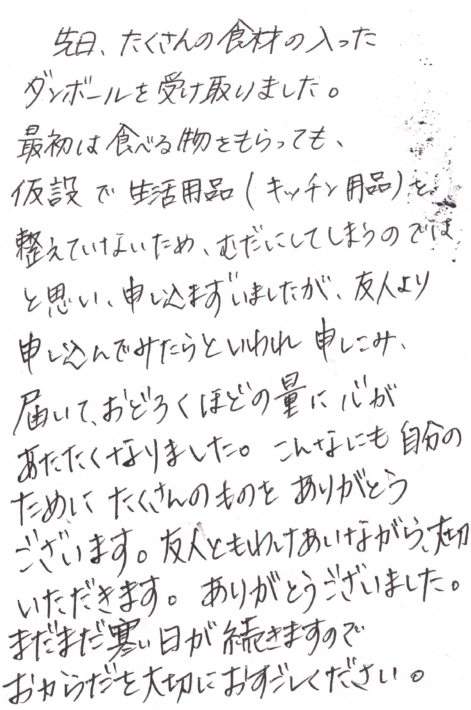 先日、たくさんの食材の入った
ダンボールを受け取りました。
最初は食べる物をもらっても、
仮設で生活用品(キッチン用品)を
整えていないため、むだにしてしまうのでは
と思い、申し込まずいましたが、友人より
申し込んでみたらといわれ申しこみ、
届いて、おどろくほどの量に心が
あたたくなりました。こんなにも自分の
ためにたくさんのものをありがとう
ございます。友人ともわけあいながら、大切
いただきます。ありがとうございました。
まだまだ寒い日が続きますので
おからだを大切におすごしください。